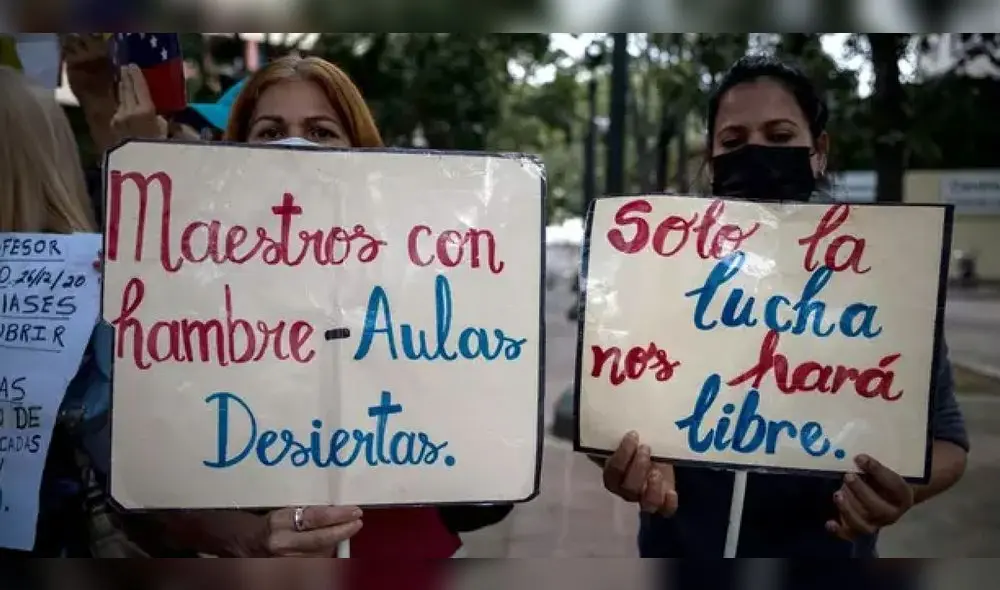 FESOR
26/12/20
IASES
UBRIR
AS
O DE
CADAS
Y
Maestros con
hambre - Aulas
Desiertas.
Solo la
lucha
nos hará
libre.